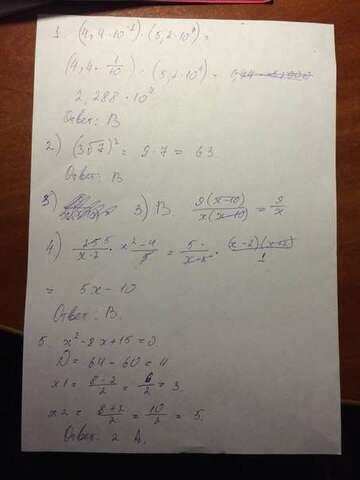 1. (4,4 · 10⁻¹) · (5,2 · 10⁴) =
(4,4 · 1/10) · (5,2 · 10⁴) =
2,288 · 10⁴
Ответ: В
2) (3√7)² = 9 · 7 = 63.
Ответ: В
3) 3) В. 9(x-10)/x(x-10) = 9/x
4) · x²-4/5 = 5 · (x-2)(x+2)/1
= 5x - 10
Ответ: В.
5. x² - 8x + 15 = 0
D = 64 - 60 = 4
x1 = 8-2/2 = 6/2 = 3.
x2 = 8+2/2 = 10/2 = 5.
Ответ: 2 А.